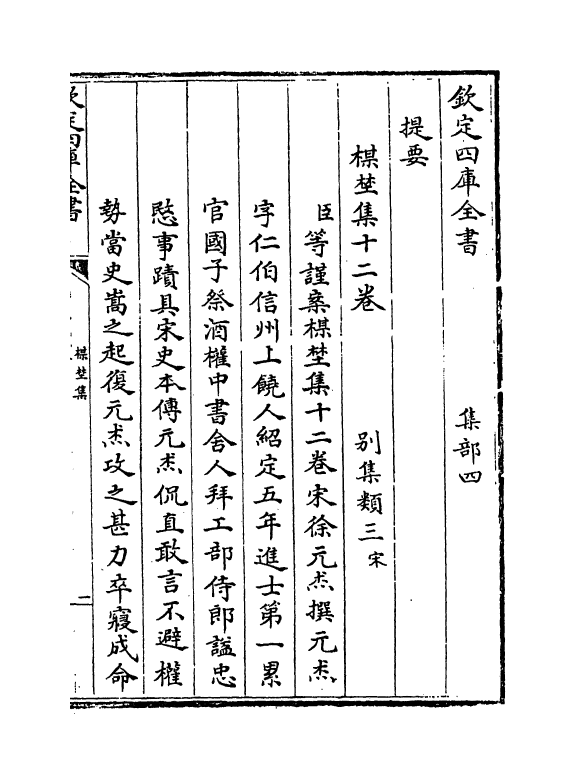 欽定四庫全書　　　　集部四
提要
楳埜集十二卷　　　別集類三宋
臣等謹案楳埜集十二卷宋徐元杰撰元杰
字仁伯信州上饒人紹定五年進士第一累
官國子祭酒權中書舍人拜工部侍郎諡忠
愍事蹟具宋史本傳元杰侃直敢言不避權
勢當史嵩之起復元杰攻之甚力卒寢成命
欽定四庫全書
楳埜集
二